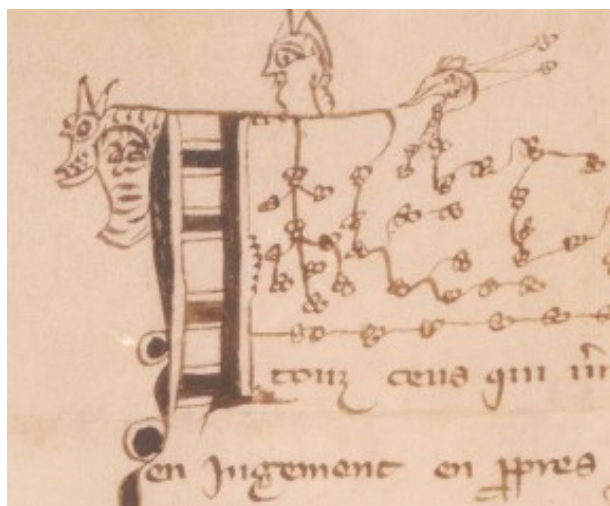 A touz ceus qui
en Jugement en